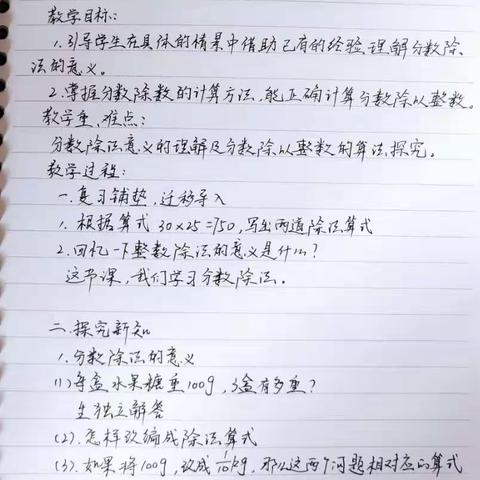 教学目标:
1.引导学生在具体的情景中借助已有的经验理解分数除
法的意义。
2.掌握分数除数的计算方法,能正确计算分数除以整数。
教学重、难点:
分数除法意义的理解及分数除以整数的算法探究。
教学过程:
一.复习铺垫,迁移导入
1.根据算式30×25=750,写出两道除法算式
2.回忆一下整数除法的意义是什么?
这节课,我们学习分数除法。
二.探究新知
1.分数除法的意义
(1)每盒水果糖重100g,3盒有多重?
生独立解答
(2).怎样改编成除法算式
(3).如果将100g,改成1/10kg,那么这两个问题相对应的算式